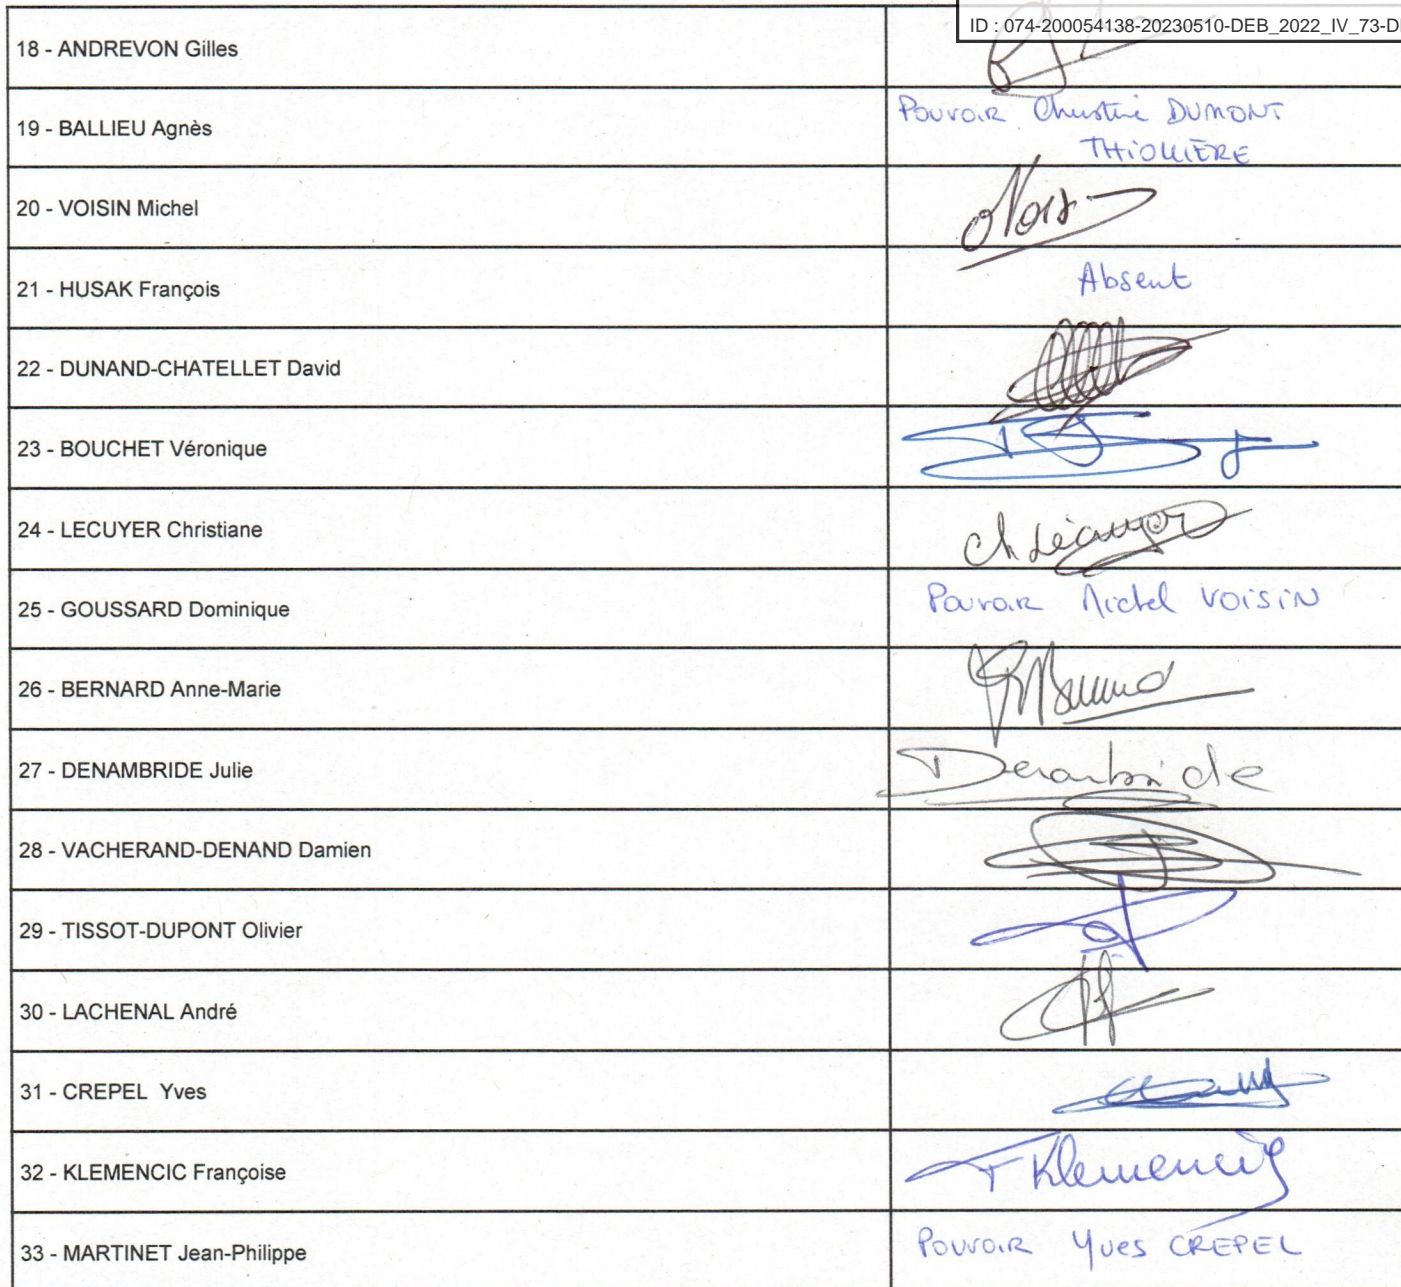 ID : 074-200054138-20230510-DEB_2022_IV_73-D
18 - ANDREVON Gilles
19 - BALLIEU Agnès
Pouvoir Christine DUMONT
THIOLLIÈRE
20 - VOISIN Michel
21 - HUSAK François
Absent
22 - DUNAND-CHATELLET David
23 - BOUCHET Véronique
24 - LECUYER Christiane
25 - GOUSSARD Dominique
Pouvoir Michel VOISIN
26 - BERNARD Anne-Marie
27 - DENAMBRIDE Julie
Denambride
28 - VACHERAND-DENAND Damien
29 - TISSOT-DUPONT Olivier
30 - LACHENAL André
31 - CREPEL Yves
32 - KLEMENCIC Françoise
F Klemencic
33 - MARTINET Jean-Philippe
Pouvoir Yves CREPEL